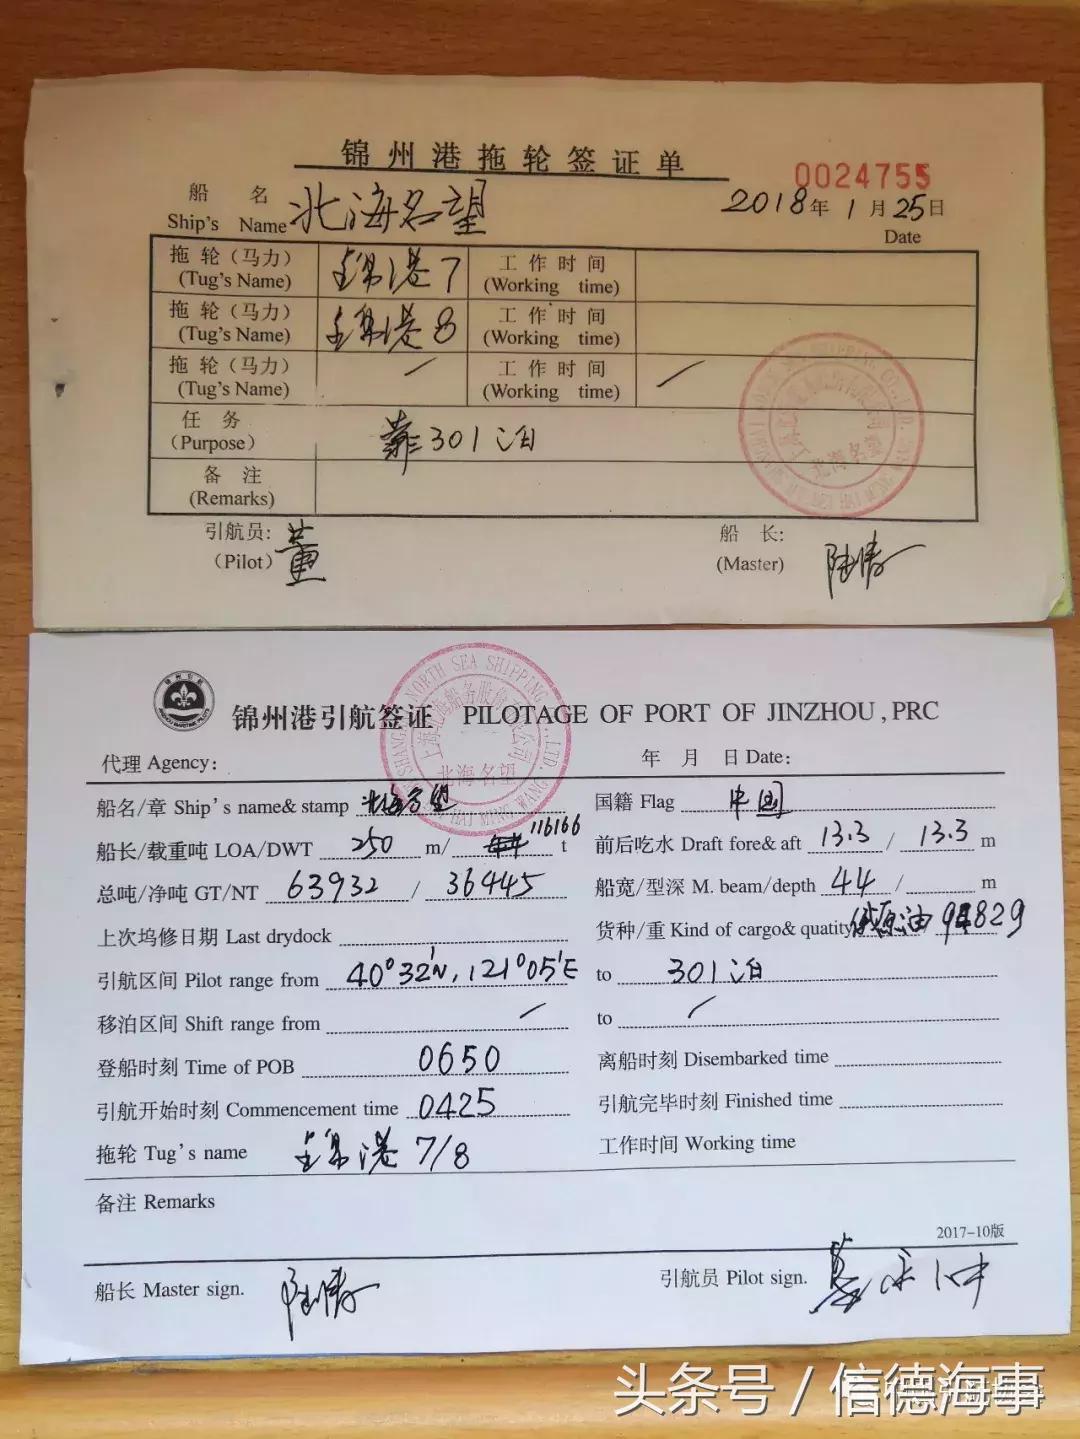 锦州港拖轮签证单
0024755
船名 北海名望 2018年1月25日
Ship's Name Date
拖轮（马力） 锦港7 工作时间
(Tug's Name) (Working time)
拖轮（马力） 锦港8 工作时间
(Tug's Name) (Working time)
拖轮（马力） 工作时间
(Tug's Name) (Working time)
任务 靠301泊
(Purpose)
备注
(Remarks)
引航员: 董 船长:
(Pilot) (Master) 陆涛
SHANGHAI NORTH SEA SHIPPING CO.,LTD.
北海名望
锦州港引航签证 PILOTAGE OF PORT OF JINZHOU , PRC
代理 Agency: 年 月 日 Date:
船名/章 Ship's name& stamp 北海名望 国籍 Flag 中国
船长/载重吨 LOA/DWT 250 m/ 116166 t 前后吃水 Draft fore& aft 13.3 / 13.3 m
总吨/净吨 GT/NT 63932 / 36445 船宽/型深 M. beam/depth 44 / m
上次坞修日期 Last drydock 货种/重 Kind of cargo& quatity 原油 / 94829
引航区间 Pilot range from 40°32'N, 121°05'E to 301泊
移泊区间 Shift range from to
登船时刻 Time of POB 0650 离船时刻 Disembarked time
引航开始时刻 Commencement time 0425 引航完毕时刻 Finished time
拖轮 Tug's name 锦港 7/8 工作时间 Working time
备注 Remarks
2017-10版
船长 Master sign. 陆涛 引航员 Pilot sign.
头条号 / 信德海事